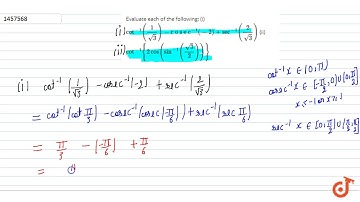 1457568
Evaluate each of the following: (i)
(i) cot⁻¹(1/√3) - cosec⁻¹(-2) + sec⁻¹(2/√3) (ii)
(ii) cot⁻¹{2cos(sin⁻¹(√3/2))}
(i) cot⁻¹(1/√3) - cosec⁻¹(-2) + sec⁻¹(2/√3)
= cot⁻¹(cot π/3) - cosec⁻¹(cosec(-π/6)) + sec⁻¹(sec π/6)
= π/3 - [-π/6] + π/6
=
cot⁻¹x ∈ (0,π)
cosec⁻¹x ∈ [-π/2,0)∪(0,π/2]
x≤-1 or x≥1
sec⁻¹x ∈ [0,π/2)∪(π/2,π]
doubtnut